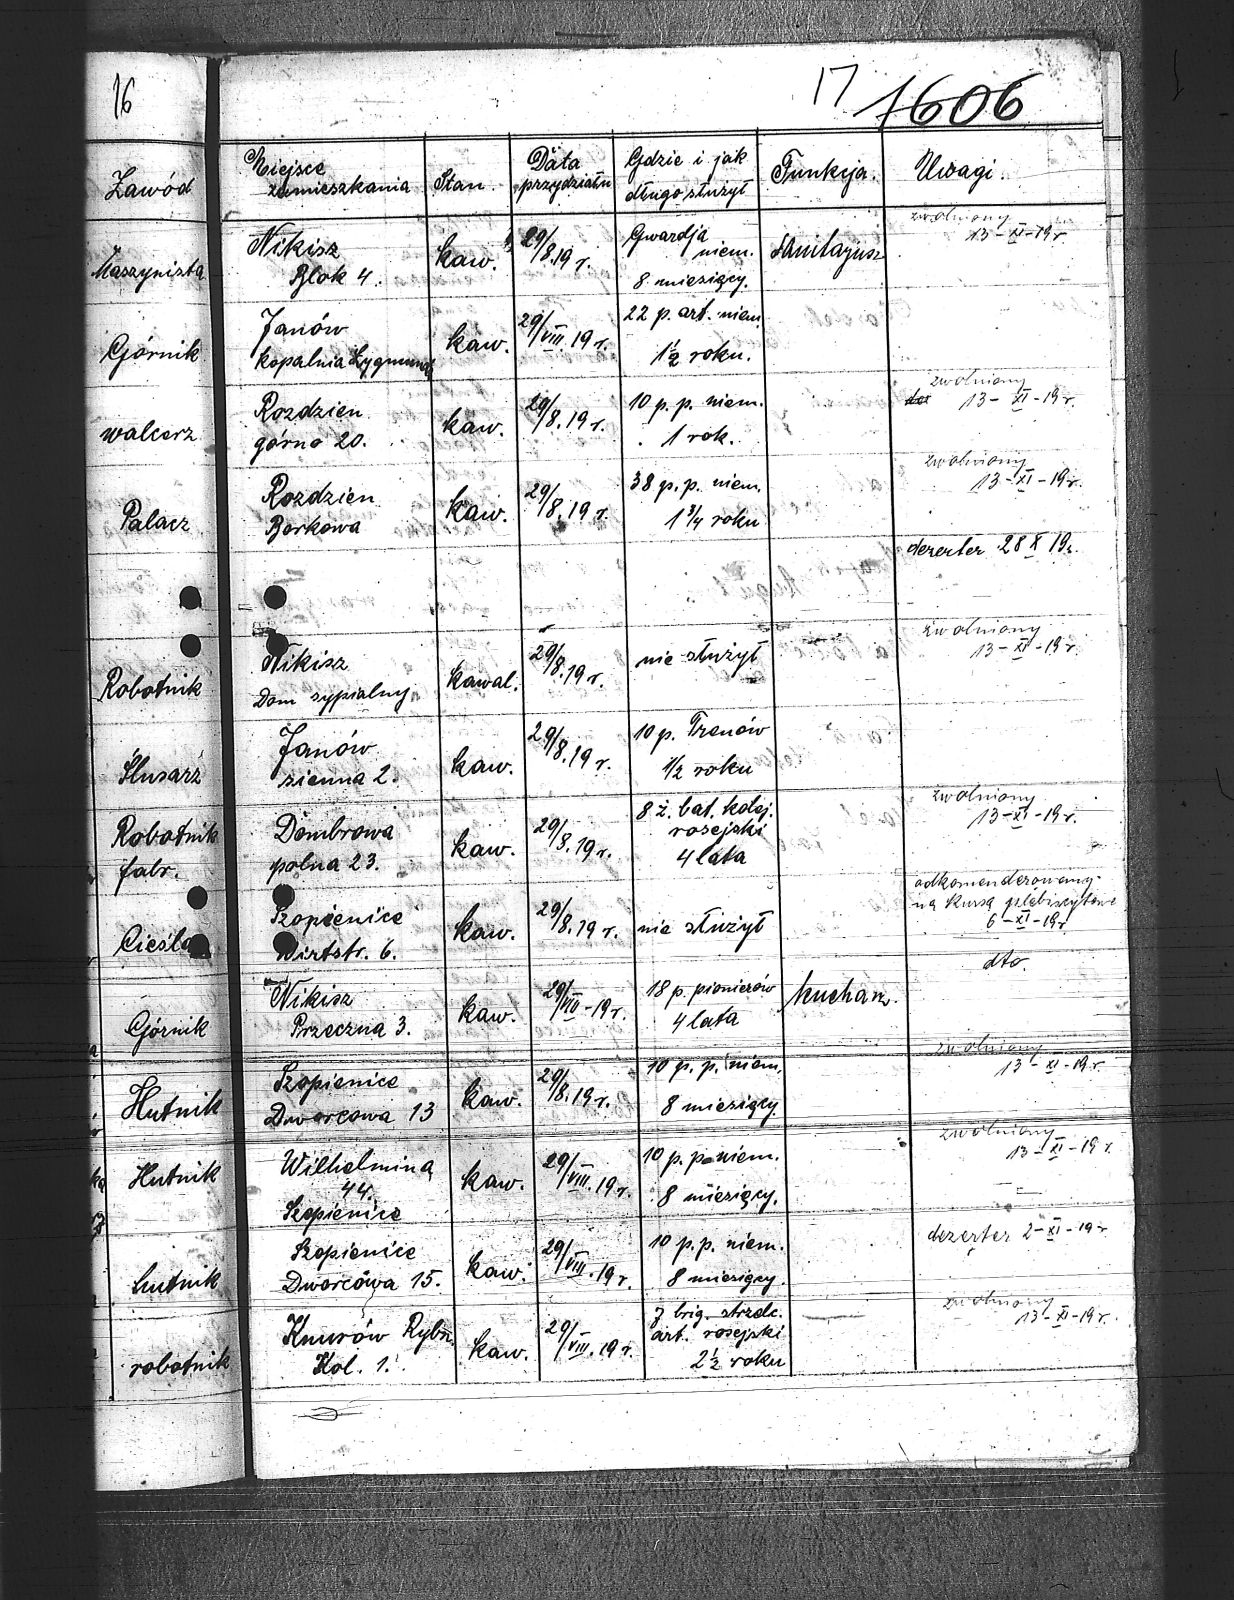 16
17 1606
Zawód Miejsce zamieszkania Stan. Data przydziału Gdzie i jak długo służył Funkcja. Uwagi.
Maszynista Nikisz Blok 4. kaw. 29/8.19 r. Gwardja niem. 8 miesięcy. Sanitarjusz zwolniony 13-XI-19 r
Górnik Janów kopalnia Zygmund kaw. 29/VIII.19 r. 22 p. art. niem. 1½ roku.
walcerz Rozdzien górno 20. kaw. 29/8.19 r. 10 p. p. niem. 1 rok. zwolniony 13-XI-19 r.
Palacz Rozdzien Borkowa kaw. 29/8.19 r. 38 p. p. niem. 1 3/4 roku zwolniony 13-XI-19 r.
dezerter 28 X 19 r.
Robotnik Nikisz Dom sypialny kawal. 29/8.19 r. nie służył zwolniony 13-XI-19 r.
Ślusarz Janów sienna 2. kaw. 29/8.19 r. 10 p. Trenów 1/2 roku
Robotnik fabr. Dombrowa polna 23. kaw. 29/8.19 r. 8 ż. bat. kolej. rosejski 4 lata zwolniony 13-XI-19 r.
Cieśla Szopienice Wirtstr. 6. kaw. 29/8.19 r. nie służył odkomenderowany na kursa plebiscytowe 6-XI-19 r
Górnik Nikisz Przeczna 3. kaw. 29/VIII-19 r. 18 p. pionierów 4 lata kucharz. dto.
Hutnik Szopienice Dworcowa 13 kaw. 29/8.19 r. 10 p. p. niem. 8 miesięcy zwolniony 13-XI-19 r.
Hutnik Wilhelmina 44. Szopienice kaw. 29/VIII.19 r. 10 p. p. niem. 8 miesięcy. zwolniony 13-XI-19 r.
hutnik Szopienice Dworcowa 15. kaw. 29/VIII.19 r. 10 p. p. niem. 8 miesięcy. dezerter 2-XI-19 r
robotnik Knurów Rybn. Kol. 1. kaw. 29/VIII.19 r. 7 brig. strzelc. art. rosejski 2½ roku zwolniony 13-XI-19 r.